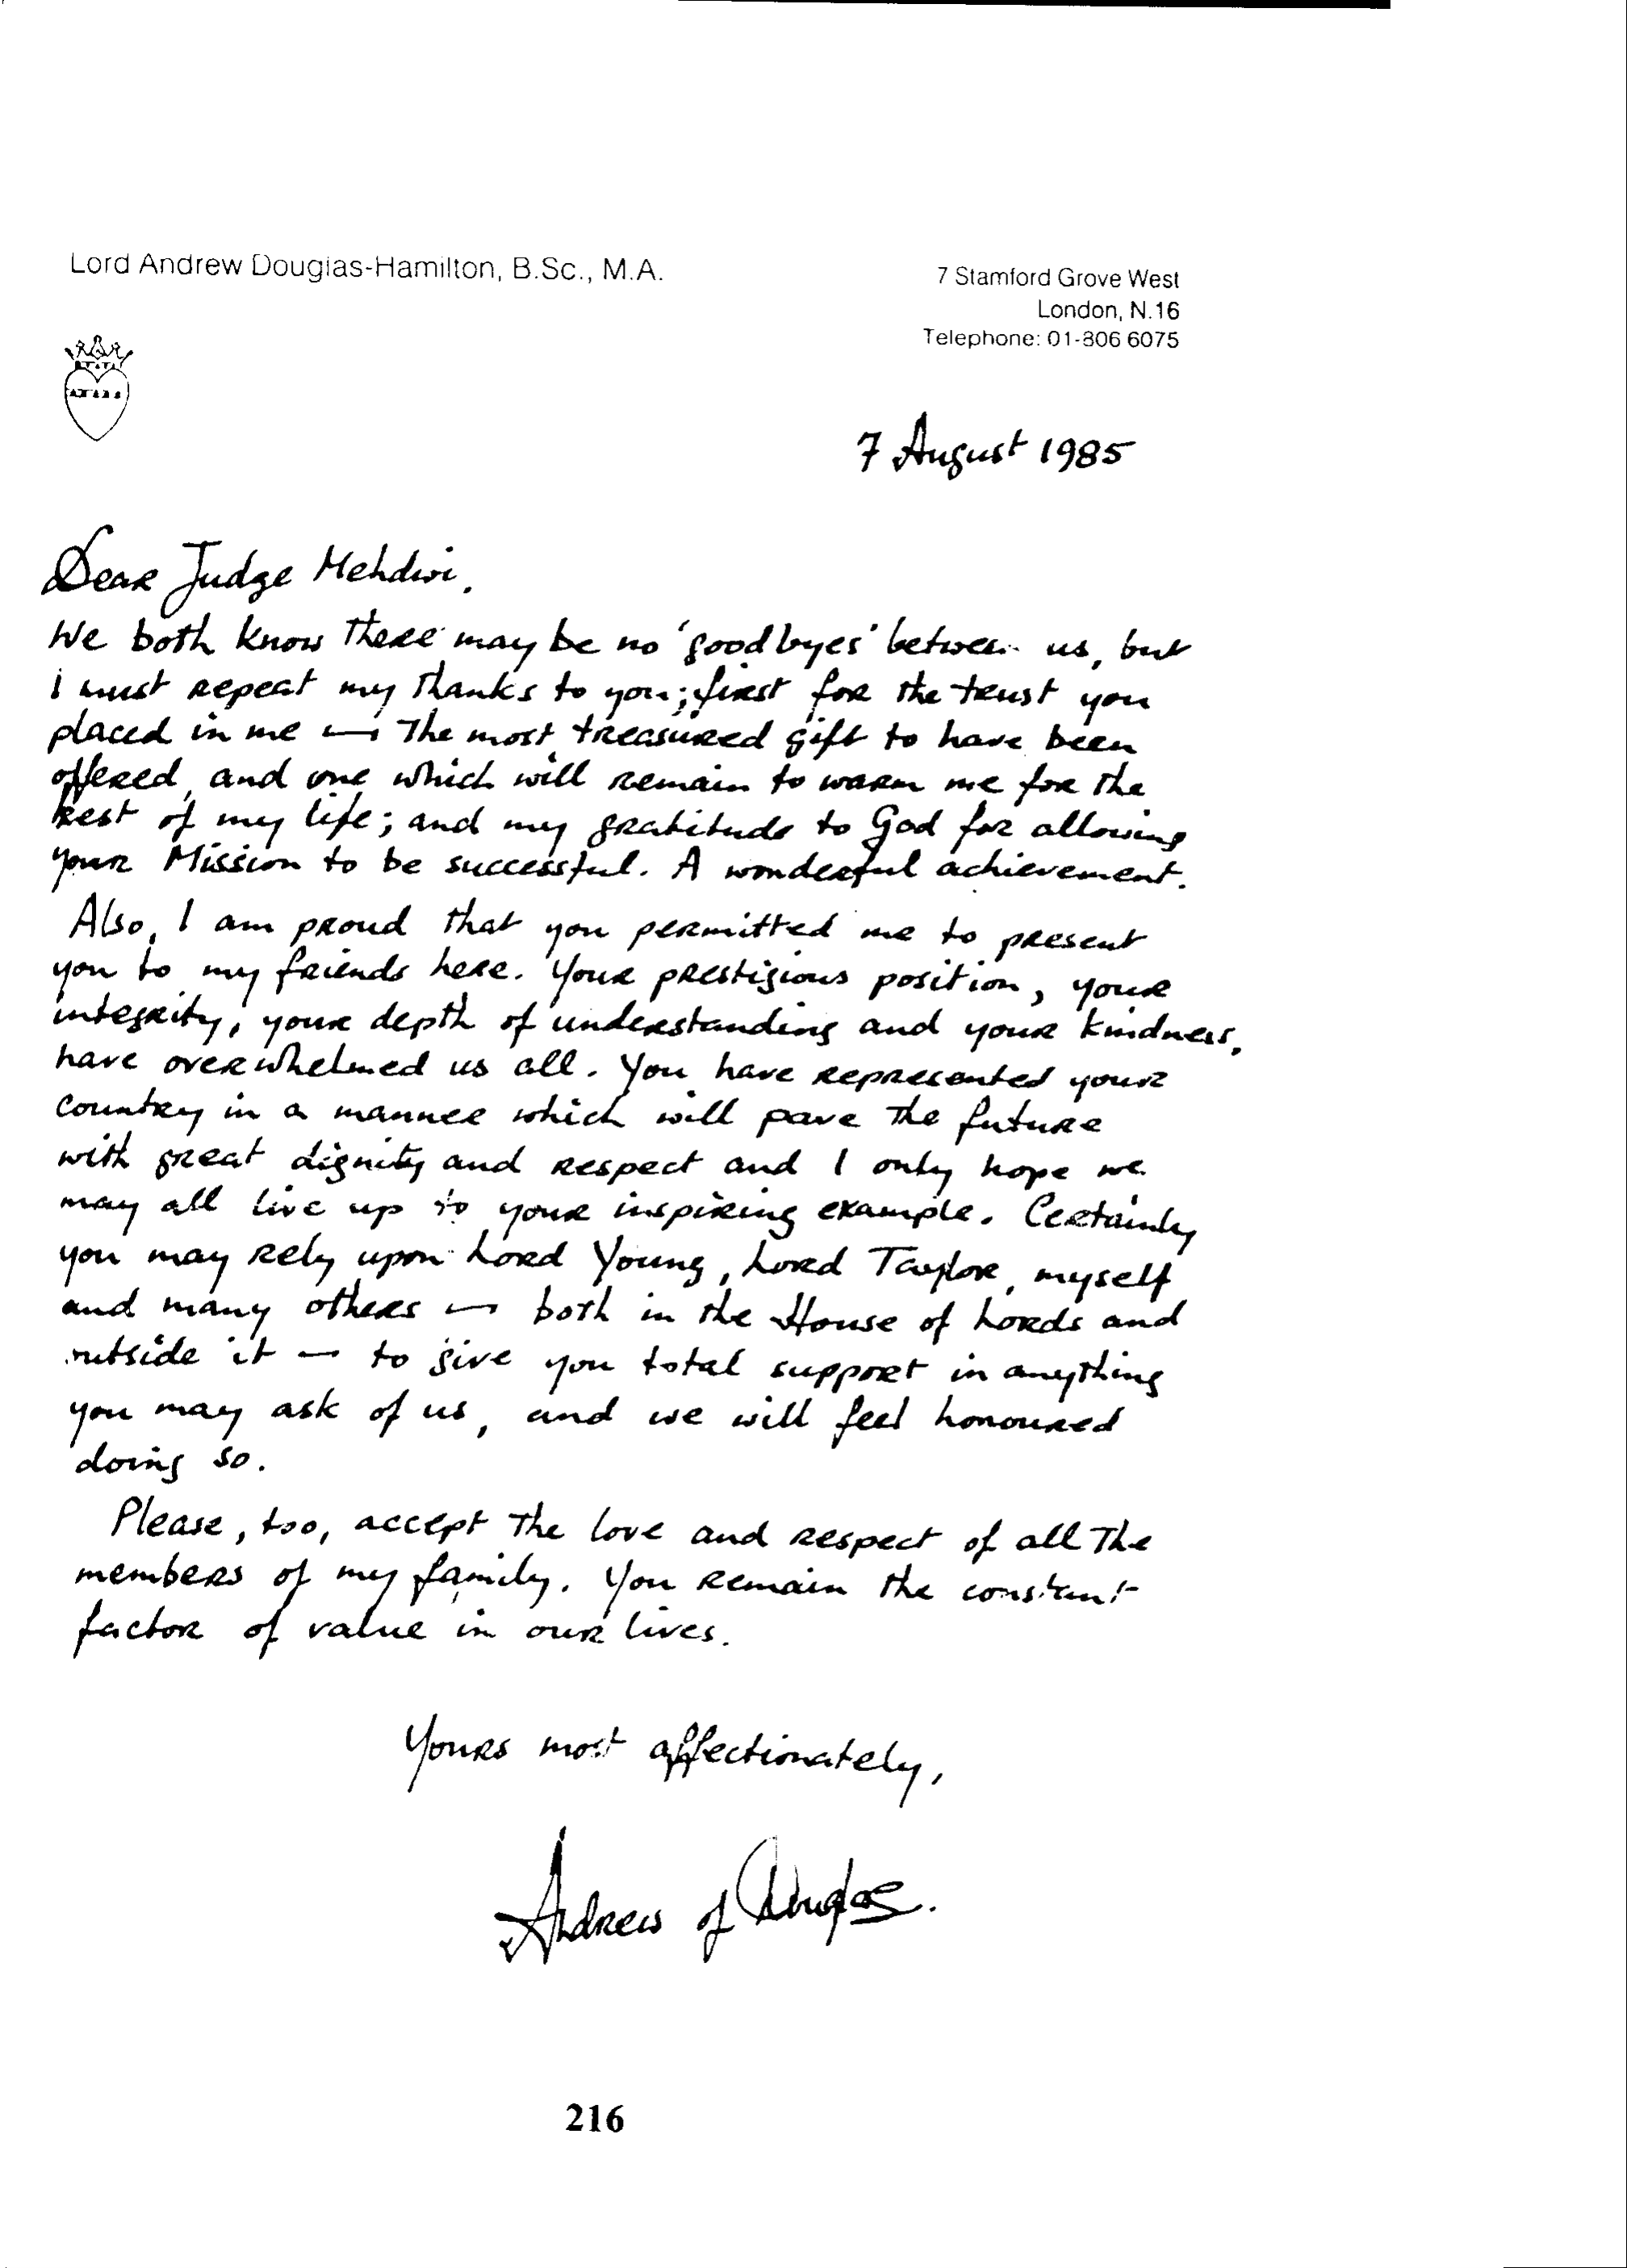 Lord Andrew Douglas-Hamilton, B.Sc., M.A.
7 Stamford Grove West
London, N.16
Telephone: 01-806 6075
7 August 1985
Dear Judge Mehdwi,
We both know there may be no 'goodbyes' between us, but
I must repeat my thanks to you; first for the trust you
placed in me — The most treasured gift to have been
offered, and one which will remain to warm me for the
rest of my life; and my gratitude to God for allowing
your Mission to be successful. A wonderful achievement.
Also, I am proud that you permitted me to present
you to my friends here. Your prestigious position, your
integrity, your depth of understanding and your kindness,
have overwhelmed us all. You have represented your
country in a manner which will pave the future
with great dignity and respect and I only hope we
may all live up to your inspiring example. Certainly
you may rely upon Lord Young, Lord Taylor, myself
and many others — both in the House of Lords and
outside it — to give you total support in anything
you may ask of us, and we will feel honoured
doing so.
Please, too, accept the love and respect of all the
members of my family. You remain the constant
factor of value in our lives.
Yours most affectionately,
Andrew of Douglas.
216